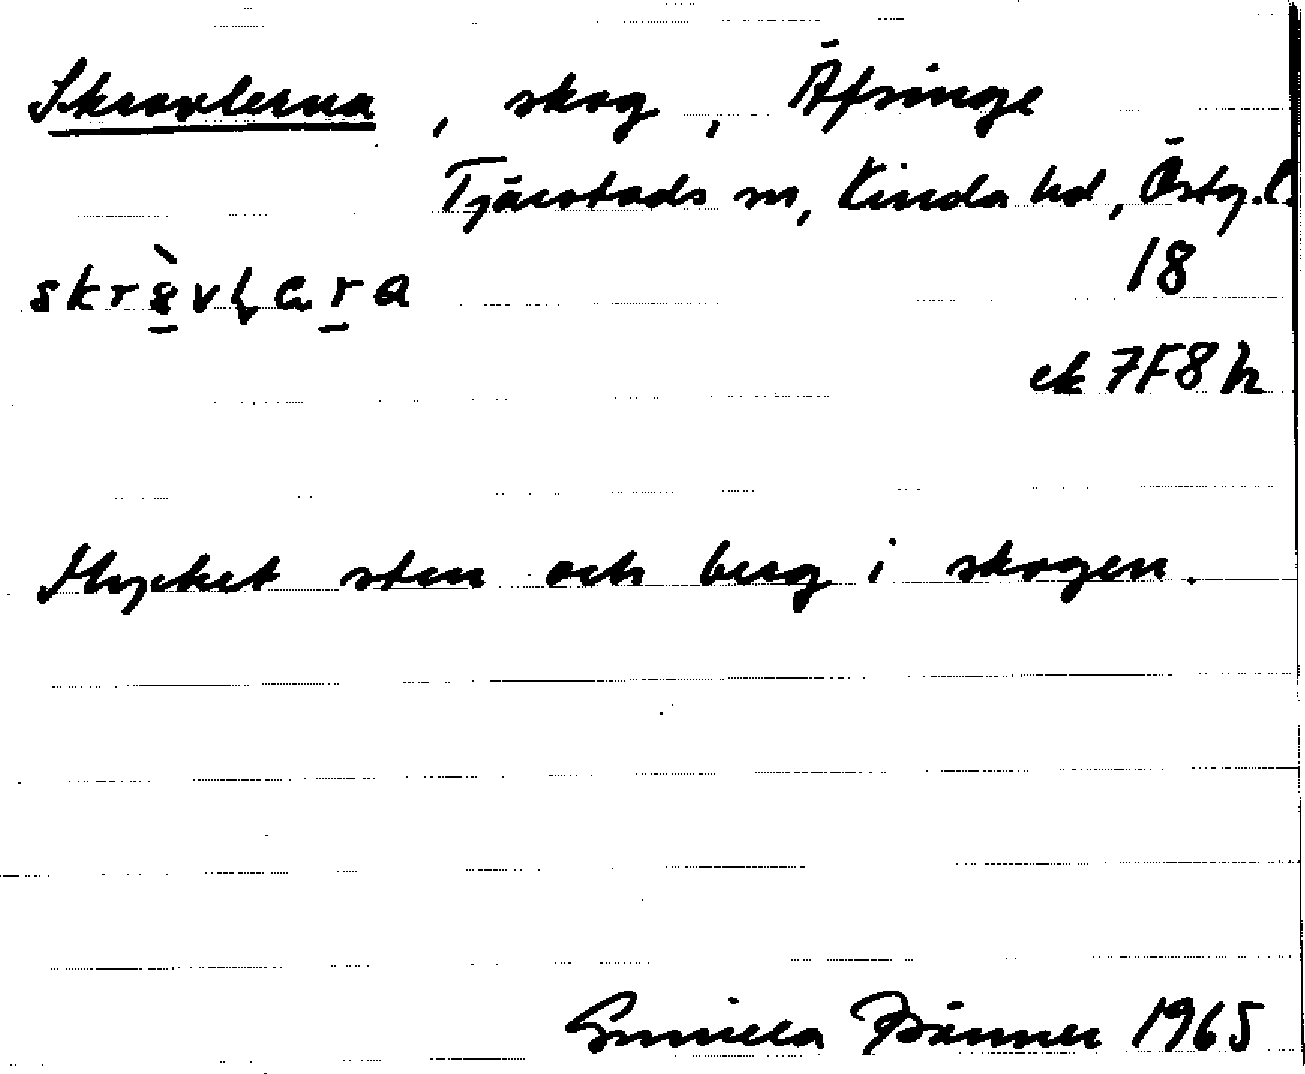 Skravlerna, skog, Äfsinge
Tjärstads sn, Kinda hd, Östg.l.
18
ek 7F8h
Mycket sten och berg i skogen.
Gunilla 1965